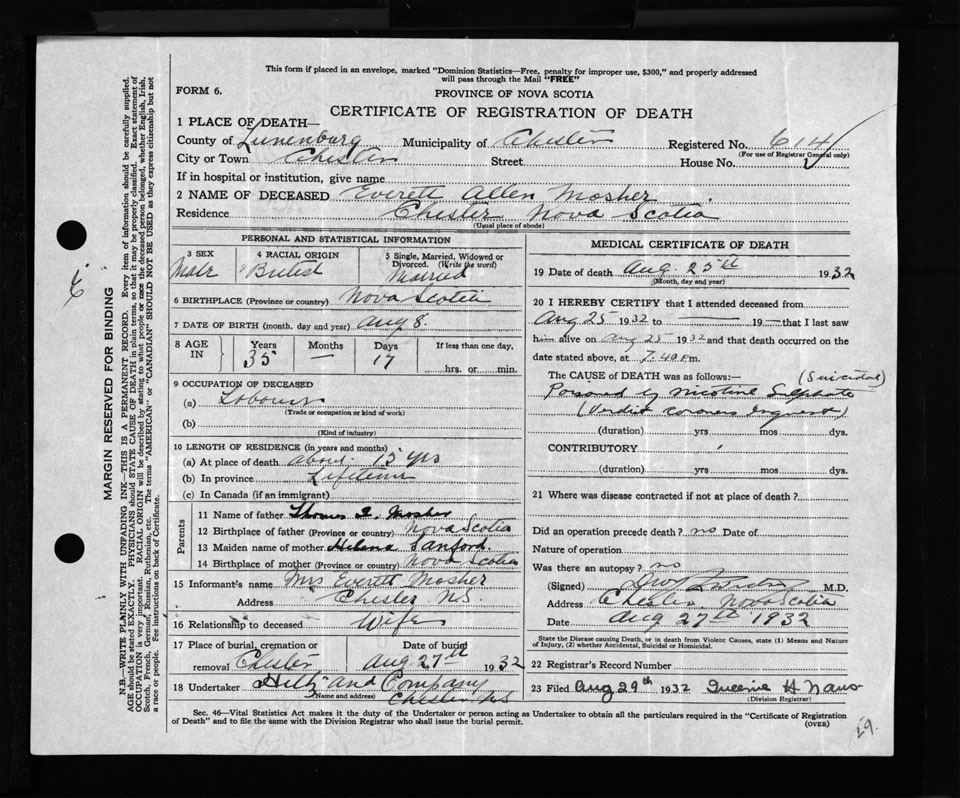 This form if placed in an envelope, marked "Dominion Statistics—Free, penalty for improper use, $300," and properly addressed
will pass through the Mail "FREE"
FORM 6.
PROVINCE OF NOVA SCOTIA
CERTIFICATE OF REGISTRATION OF DEATH
1 PLACE OF DEATH—
County of Lunenburg Municipality of Chester Registered No. 614
(For use of Registrar General only)
City or Town Chester Street House No.
If in hospital or institution, give name
2 NAME OF DECEASED Everett Allen Mosher
Residence Chester Nova Scotia
(Usual place of abode)
PERSONAL AND STATISTICAL INFORMATION
3 SEX 4 RACIAL ORIGIN 5 Single, Married, Widowed or
Divorced. (Write the word)
Male British Married
6 BIRTHPLACE (Province or country) Nova Scotia
7 DATE OF BIRTH (month, day and year) Aug 8.
8 AGE IN Years Months Days If less than one day,
35 — 17 hrs. or min.
9 OCCUPATION OF DECEASED
(a) Labourer
(Trade or occupation or kind of work)
(b)
(Kind of industry)
10 LENGTH OF RESIDENCE (in years and months)
(a) At place of death about 15 yrs
(b) In province Lifetime
(c) In Canada (if an immigrant)
Parents
11 Name of father Thomas Mosher
12 Birthplace of father (Province or country) Nova Scotia
13 Maiden name of mother Helena Sanford
14 Birthplace of mother (Province or country) Nova Scotia
15 Informant's name Mrs Everett Mosher
Address Chester N.S.
16 Relationship to deceased Wife
17 Place of burial, cremation or Date of burial
removal Chester Aug 27th 1932
18 Undertaker and Company
(Name and address) Chester N.S
MEDICAL CERTIFICATE OF DEATH
19 Date of death Aug. 25th 1932
(Month, day and year)
20 I HEREBY CERTIFY that I attended deceased from
Aug 25 1932 to — 19— that I last saw
him alive on Aug 25 1932 and that death occurred on the
date stated above, at 7.40 P.m.
The CAUSE of DEATH was as follows: (Suicidal)
Poisoned by Nicotine Sulphate
(Verdict Coroners Inquest)
(duration) yrs mos dys.
CONTRIBUTORY
(duration) yrs mos dys.
21 Where was disease contracted if not at place of death?
Did an operation precede death? no Date of
Nature of operation
Was there an autopsy? no
(Signed) M.D.
Address Chester, Nova Scotia
Date Aug 27th 1932
State the Disease causing Death, or in death from Violent Causes, state (1) Means and Nature
of Injury, (2) whether Accidental, Suicidal or Homicidal.
22 Registrar's Record Number
23 Filed Aug 29th 1932
(Division Registrar)
Sec. 46—Vital Statistics Act makes it the duty of the Undertaker or person acting as Undertaker to obtain all the particulars required in the "Certificate of Registration
of Death" and to file the same with the Division Registrar who shall issue the burial permit.
(OVER)
29.
MARGIN RESERVED FOR BINDING
N.B.—WRITE PLAINLY WITH UNFADING INK—THIS IS A PERMANENT RECORD. Every item of information should be carefully supplied.
AGE should be stated EXACTLY. PHYSICIANS should STATE CAUSE OF DEATH in plain terms, so that it may be properly classified. Exact statement of
OCCUPATION is very important. RACIAL ORIGIN will be described by stating to what people or race the deceased person belonged, whether English, Irish,
Scotch, French, German, Russian, Ruthenian, etc. The terms "AMERICAN" or "CANADIAN" SHOULD NOT BE USED as they express citizenship but not
a race or people. See instructions on back of Certificate.